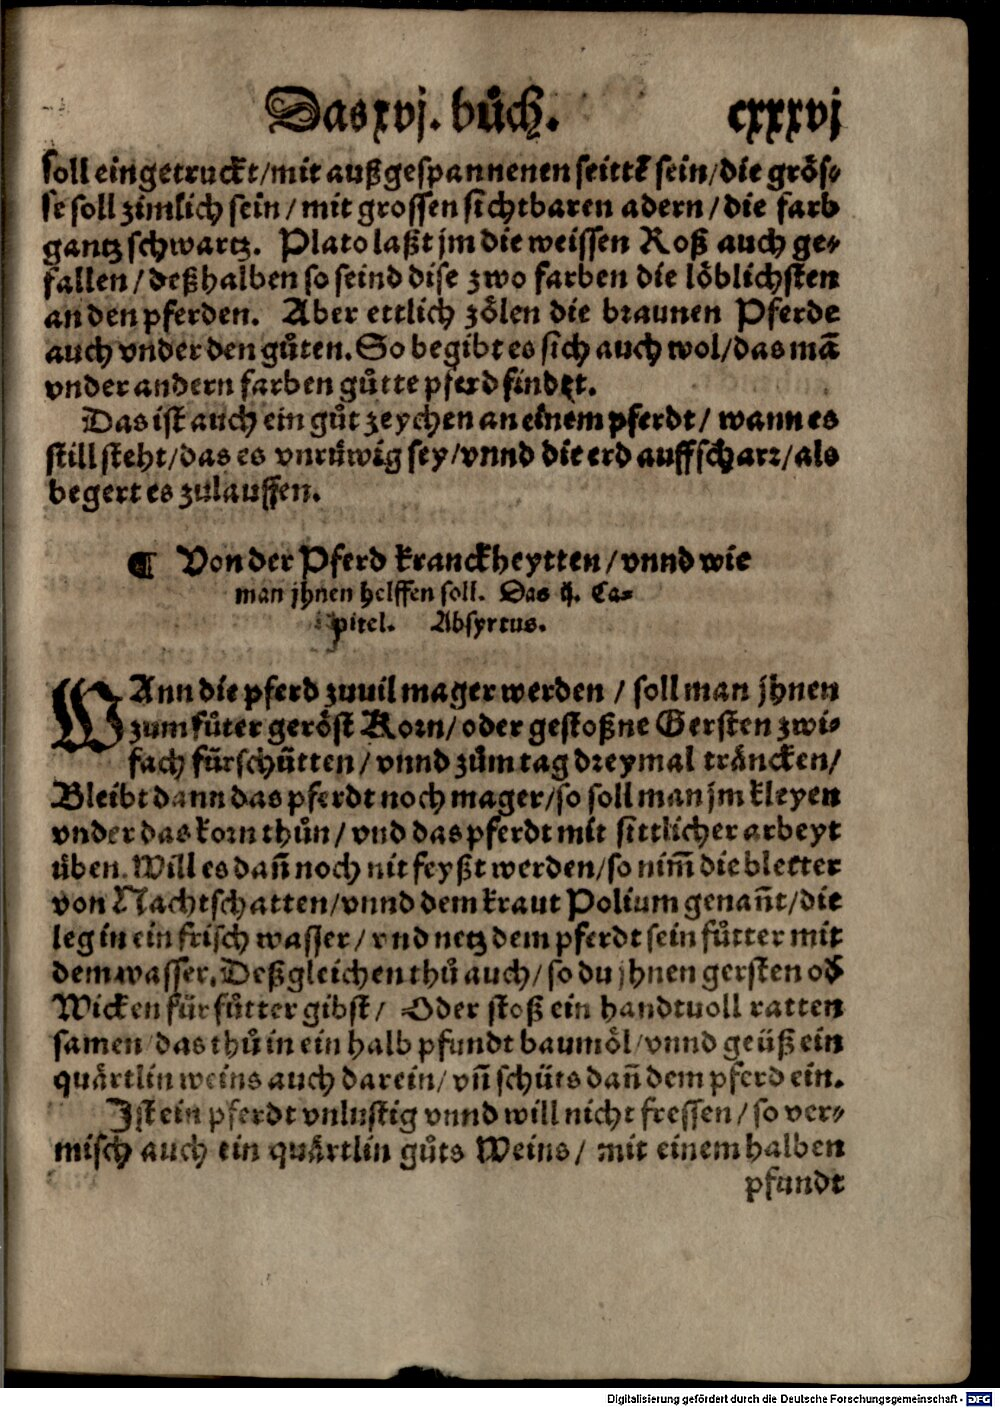 Das xvj. bůch. cxxxvj
soll eingetruckt/mit außgespannenen seittē sein/die grös-
se soll zimlich sein/mit grossen sichtbaren adern/die farb
gantz schwartz. Plato laßt jm die weissen Roß auch ge-
fallen/deßhalben so seind dise zwo farben die löblichsten
an den pferden. Aber ettlich zölen die braunen Pferde
auch vnder den gůten. So begibt es sich auch wol/das mā
vnder andern farben gůtte pferd findet.
Das ist auch ein gůt zeychen an einem pferdt/ wann es
still steht/das es vnrüwig sey/vnnd die erd auffscharr/als
begert es zulauffen.
¶ Von der Pferd kranckheytten/vnnd wie
man jhnen helffen soll. Das ij. Ca-
pitel. Absyrtus.
WAnn die pferd zuuil mager werden / soll man jhnen
zum fůter geröst Korn/oder gestoßne Gersten zwi-
fach fürschütten/vnnd zům tag dreymal träncken/
Bleibt dann das pferdt noch mager/so soll man jm kleyen
vnder das korn thůn/vnd das pferdt mit sittlicher arbeyt
üben. Will es dañ noch nit feyßt werden/so nim̃ die bletter
von Nachtschatten/vnnd dem kraut Polium genañt/die
leg in ein frisch wasser/vnd netz dem pferdt sein fůtter mit
dem wasser. Deßgleichen thů auch/so du jhnen gersten od̕
Wicken für fůtter gibst/ Oder stoß ein handtuoll ratten
samen/das thů in ein halb pfundt baumöl/vnnd geüß ein
quärtlin weins auch darein/vñ schüts dañ dem pferd ein.
Ist ein pferdt vnlustig vnnd will nicht fressen/so ver-
misch auch ein quärtlin gůts Weins/ mit einem halben
pfundt
Digitalisierung gefördert durch die Deutsche Forschungsgemeinschaft - DFG